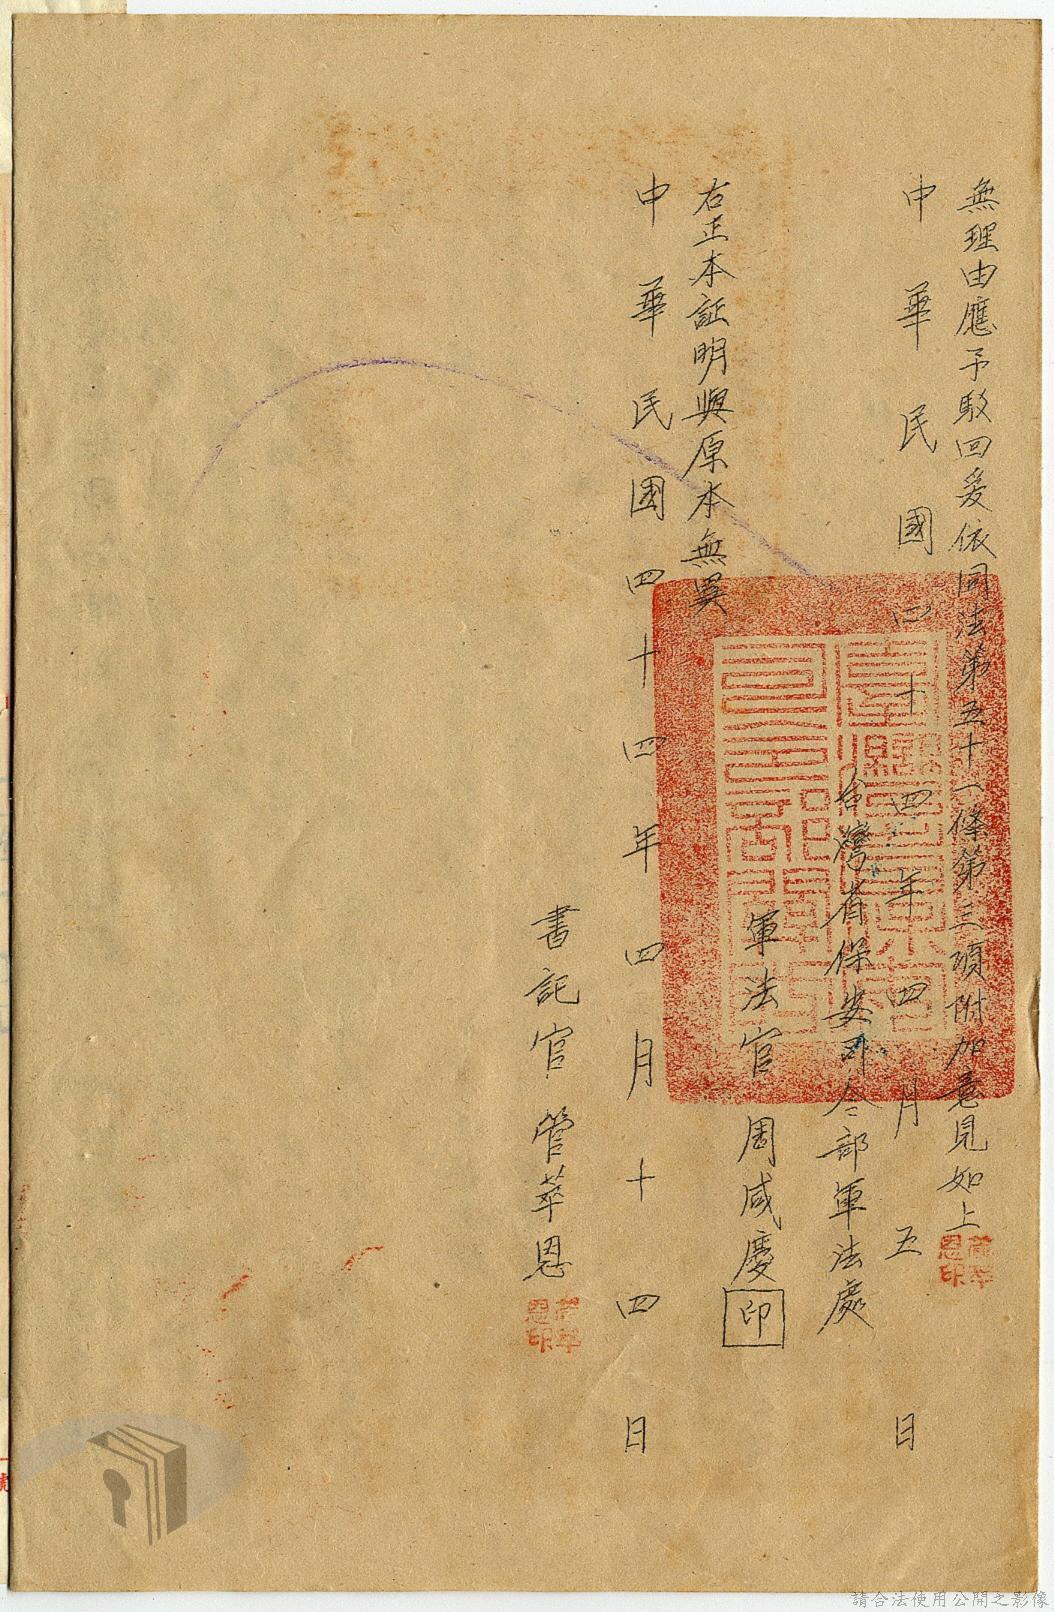 無理由應予駁回爰依同法第五十一條第三項附加意見如上
中華民國四十四年四月五日
台灣省保安司令部軍法處
軍法官周咸慶印
右正本証明與原本無異
中華民國四十四年四月十四日
書記官管萃恩
請合法使用公開之影像